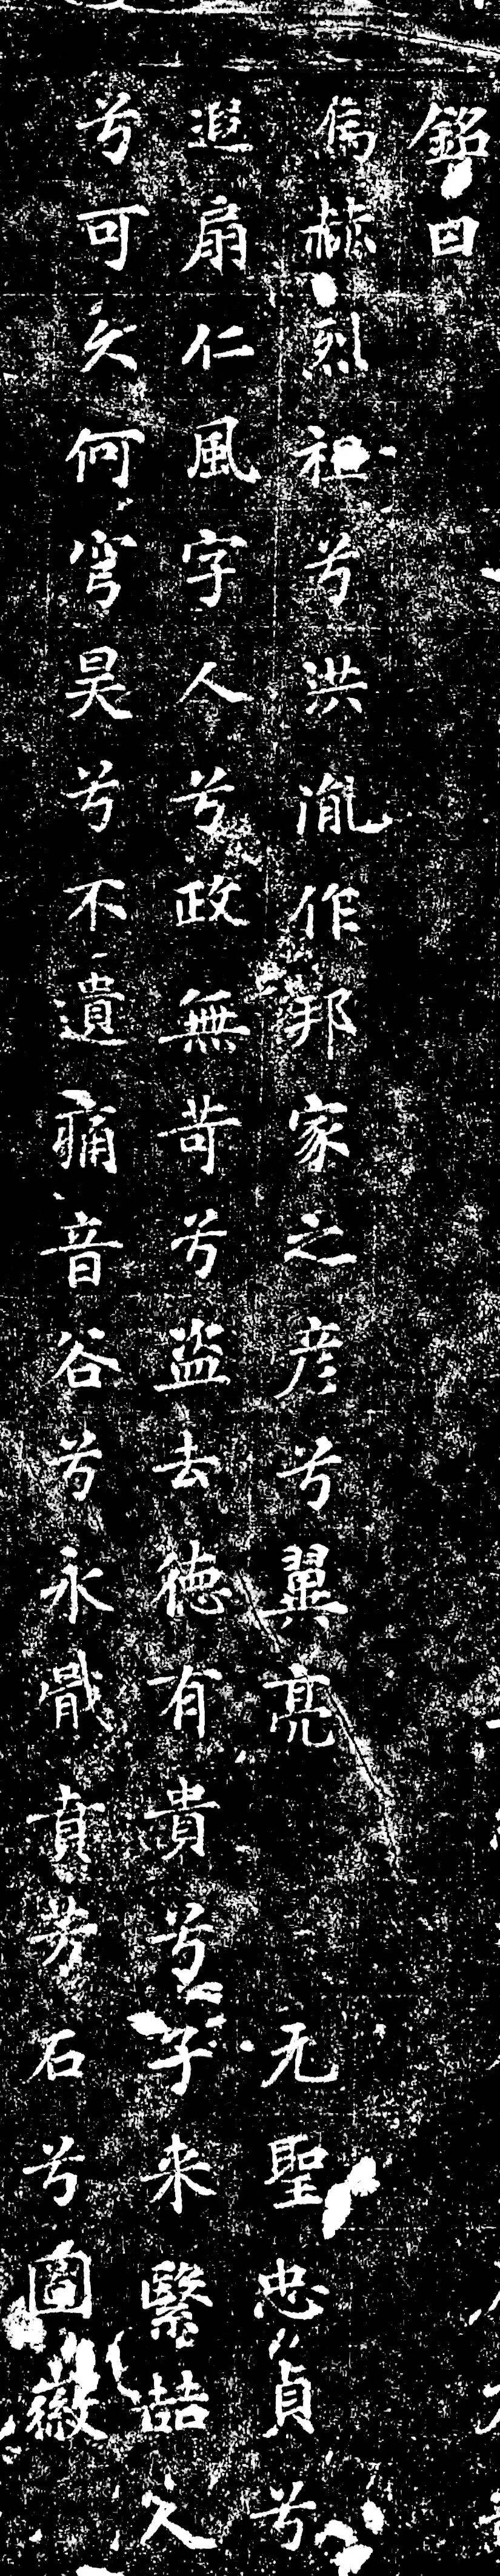 銘曰
儁赫烈祖兮洪胤作邦家之彦兮翼亮 元聖忠貞兮
遐扇仁風字人兮政無苛兮盜去德有貴兮子来繄喆人
兮可久何穹昊兮不遺痛音谷兮永戢貞芳石兮圖徽